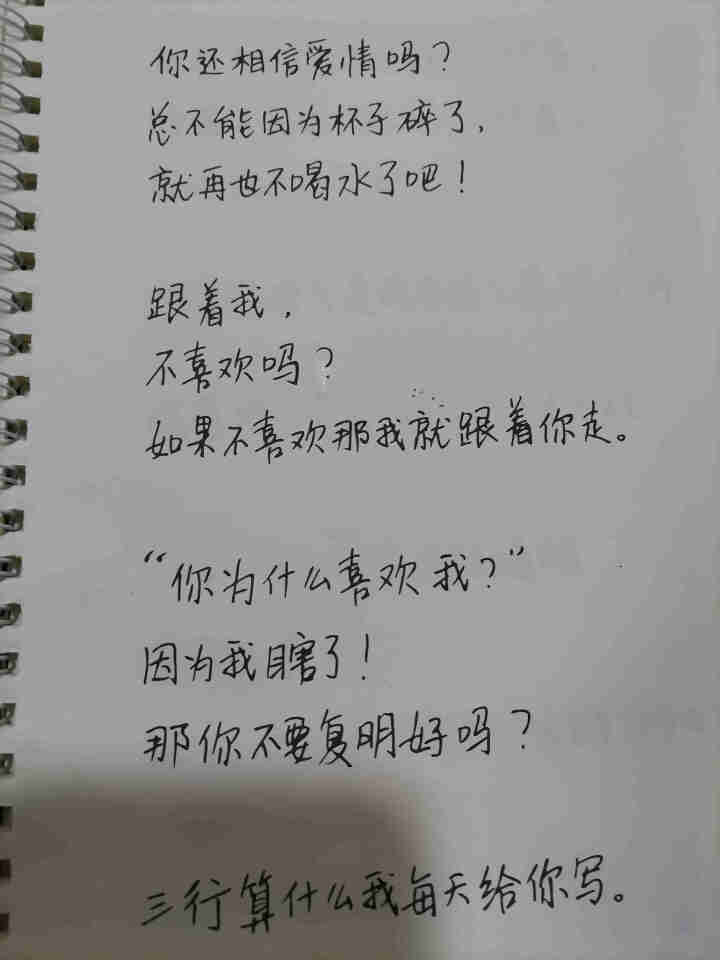 你还相信爱情吗？
总不能因为杯子碎了，
就再也不喝水了吧！
跟着我，
不喜欢吗？
如果不喜欢那我就跟着你走。
“你为什么喜欢我？”
因为我瞎了！
那你不要复明好吗？
三行算什么我每天给你写。